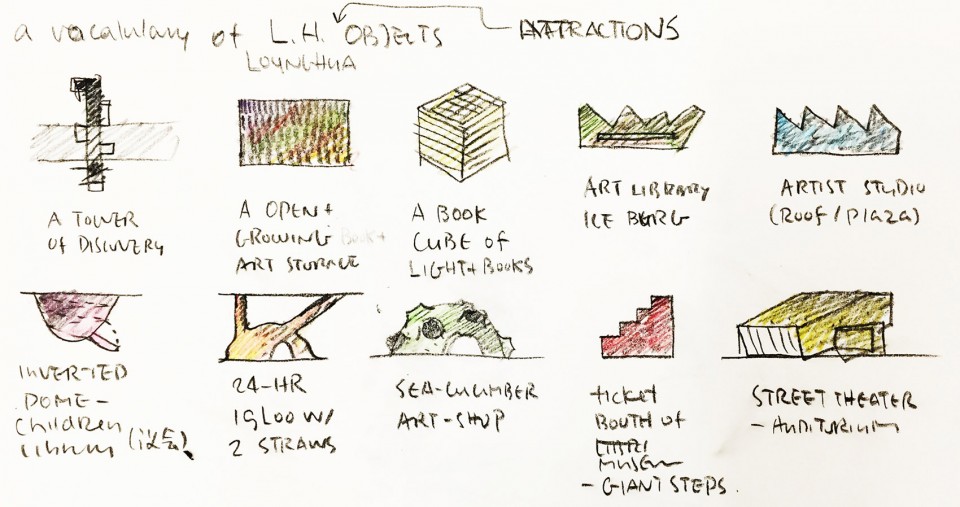 a vocabulary of L.H. OBJECTS
ATTRACTIONS
LOUNGHUA
A TOWER
OF DISCOVERY
A OPEN +
GROWING
ART STORAGE
A BOOK
CUBE OF
LIGHT + BOOKS
ART LIBRARY
ICE BURG
ARTIST STUDIO
(ROOF / PLAZA)
INVERTED
DOME -
children
24-HR
IGLOO W/
2 STRAWS
SEA-CUCUMBER
ART-SHOP
ticket
BOUTH OF
MUSEUM
- GIANT STEPS.
STREET THEATER
- AUDITORIUM